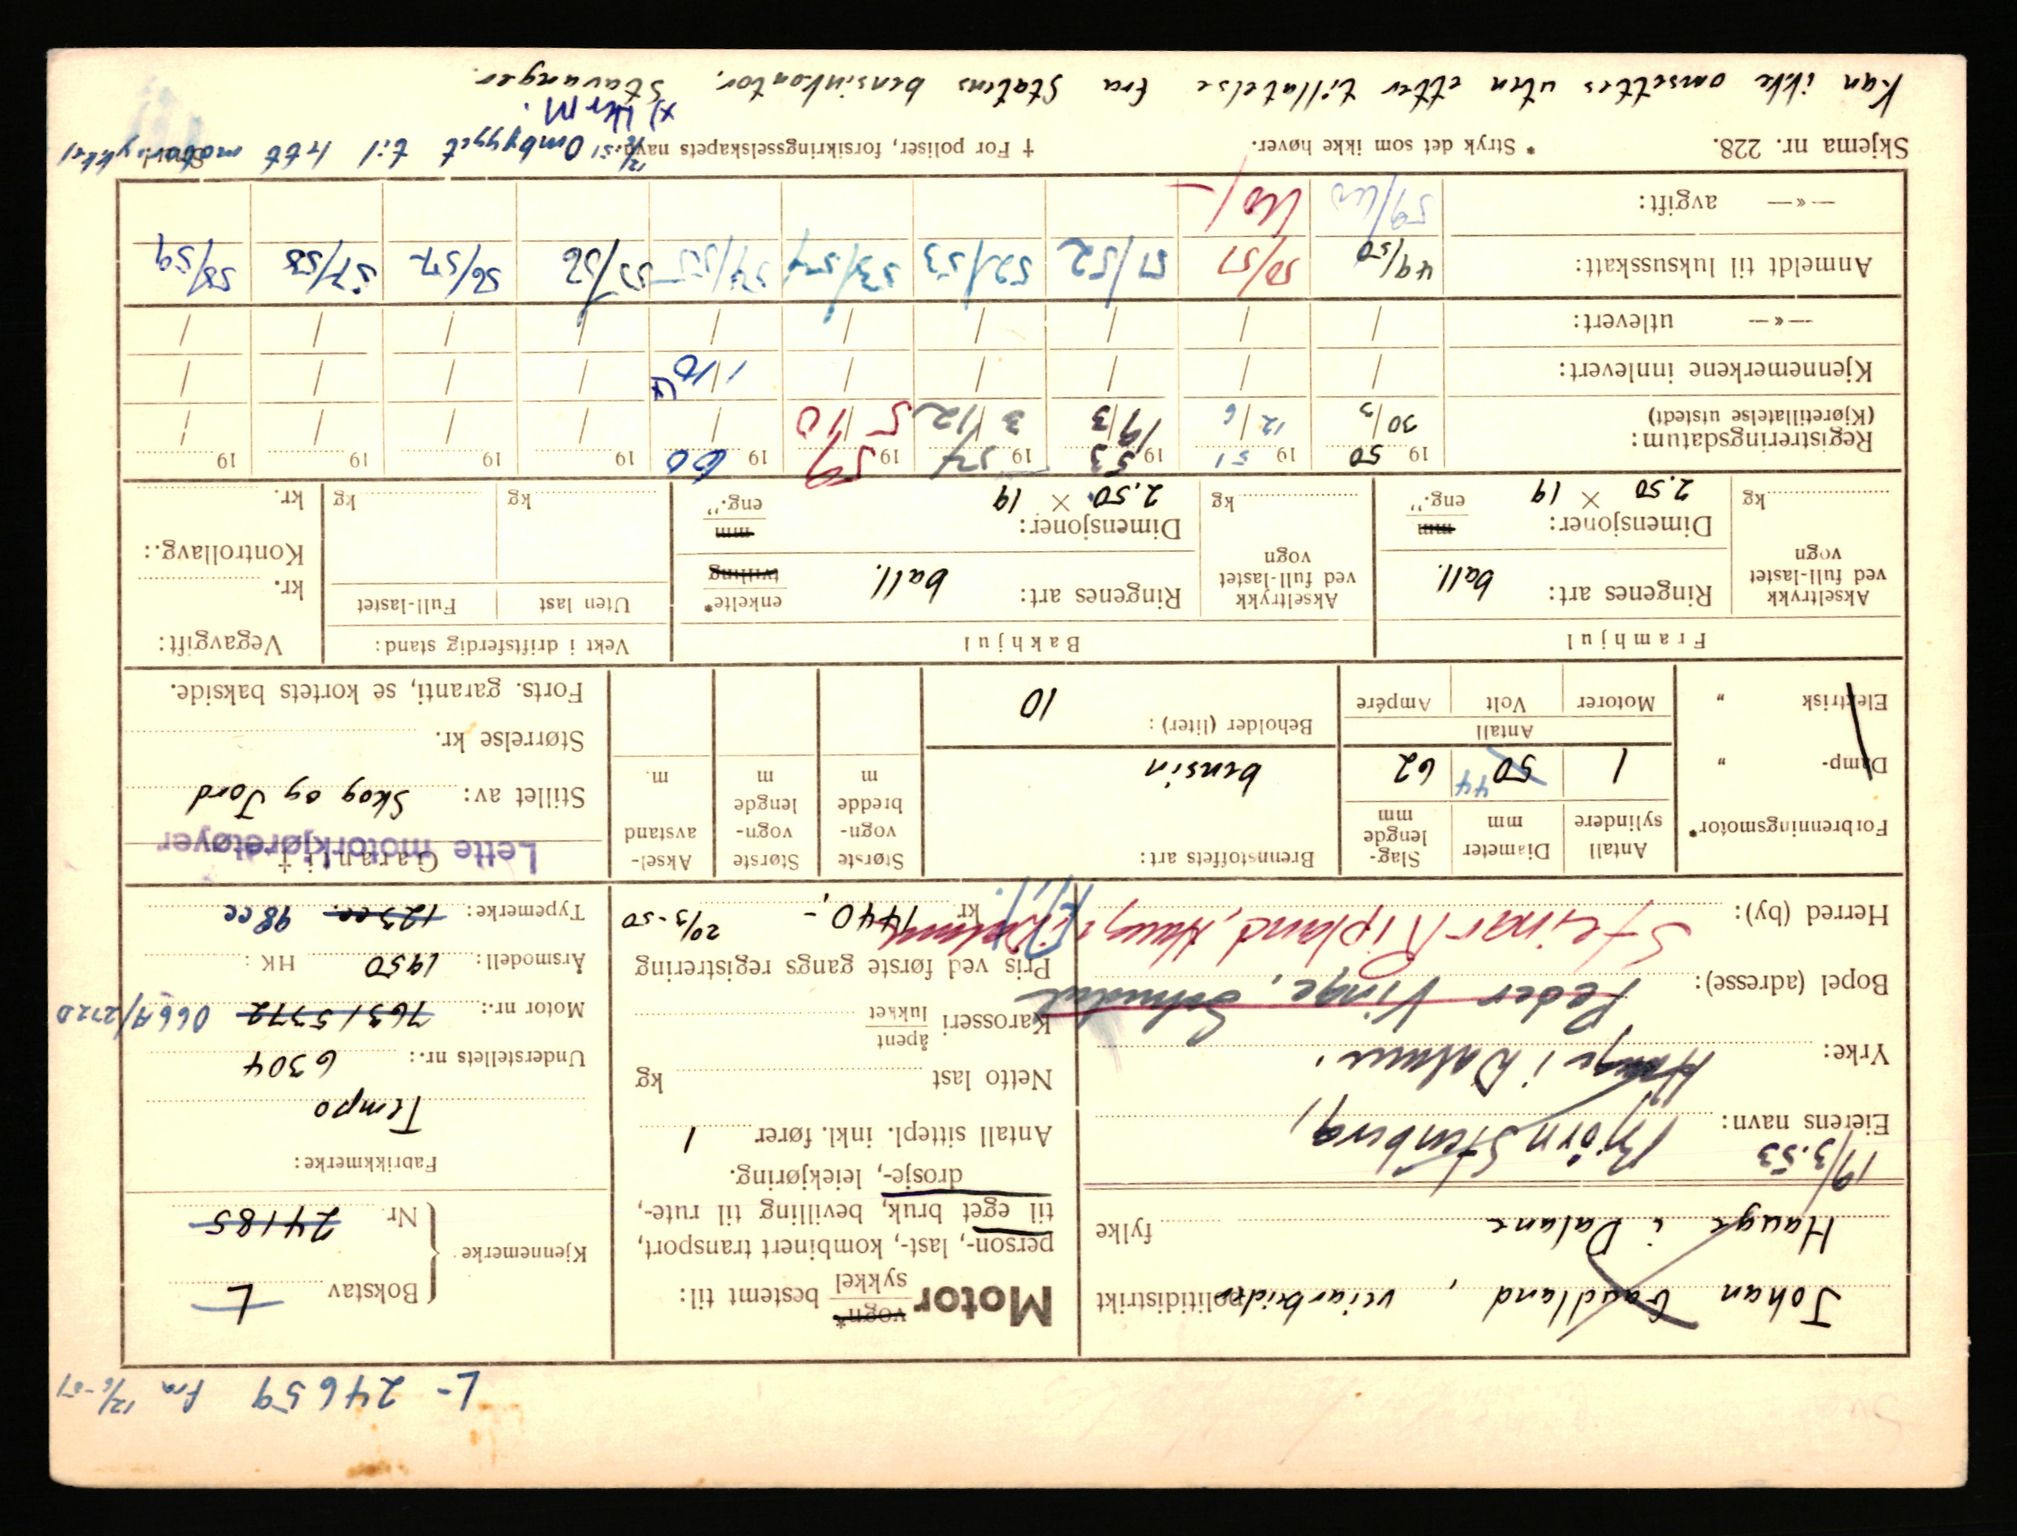 L- 24659 fra 12/6-51
Johan Gaudland, veiarbeider politidistrikt
Hauge i Dalane fylke
19/3.53
Eierens navn: Bjørn Stenberg,
Yrke: Hauge i Dalane.
Bopel (adresse): Peder Vinge,
Herred (by): Steinar Ripland, Hauge i Dalane
Motor vogn* sykkel bestemt til:
person-, last-, kombinert transport,
til eget bruk, bevilling til rute-,
drosje-, leiekjøring.
Antall sittepl. inkl. fører 1
Netto last kg
Karosseri åpent lukket
Pris ved første gangs registrering
kr 1440,- 20/3-50
Kjennemerke { Bokstav L
Nr 24185
Fabrikkmerke:
Tempo
Understellets nr.: 6304
Motor nr.: 76315372 066A/2720
Årsmodell: 1950 HK:
Typemerke: 123 cc. 98 cc
Forbrenningsmotor*
Damp- "
Elektrisk "
Antall sylindere 1
Diameter mm 50 44
Slag-lengde mm 62
Antall
Motorer Volt Ampére
Brennstoffets art:
bensin
Beholder (liter): 10
Største vogn-bredde m
Største vogn-lengde m
Aksel-avstand m.
Garanti †
Lette motorkjøretøyer
Stillet av: Skog og Jord
Størrelse kr.
Forts. garanti, se kortets bakside.
Framhjul
Akseltrykk ved full-lastet vogn
kg
Ringenes art: ball.
Dimensjoner: mm eng."
2.50 × 19
Bakhjul
Akseltrykk ved full-lastet vogn
kg
Ringenes art: ball. enkelte* tvilling
Dimensjoner: mm eng."
2.50 × 19
Vekt i driftsferdig stand:
Uten last Full-lastet
kg kg
Vegavgift:
kr.
Kontrollavg.:
kr.
Registreringsdatum: 19 50 19 51 19 53 19 57 19 59 19 60 19 19 19 19
(Kjøretillatelse utstedt) 30/3 12/6 19/3 3/12 5/10 / / / / /
Kjennemerkene innlevert: / / / / / 1/10 / / / /
—«— utlevert: / / / / / / / / /
Anmeldt til luksusskatt: 49/50 50/51 51/52 52/53 53/54 54/55 55/56 56/57 57/58 58/59
—«— avgift: 59/60
Skjema nr. 228. * Stryk det som ikke høver. † For poliser, forsikringsselskapets navn.
12/6.51 Ombygget til lett motorsykkel
Kan ikke omsettes uten etter tillatelse fra Statens bensinkontor, Stavanger.